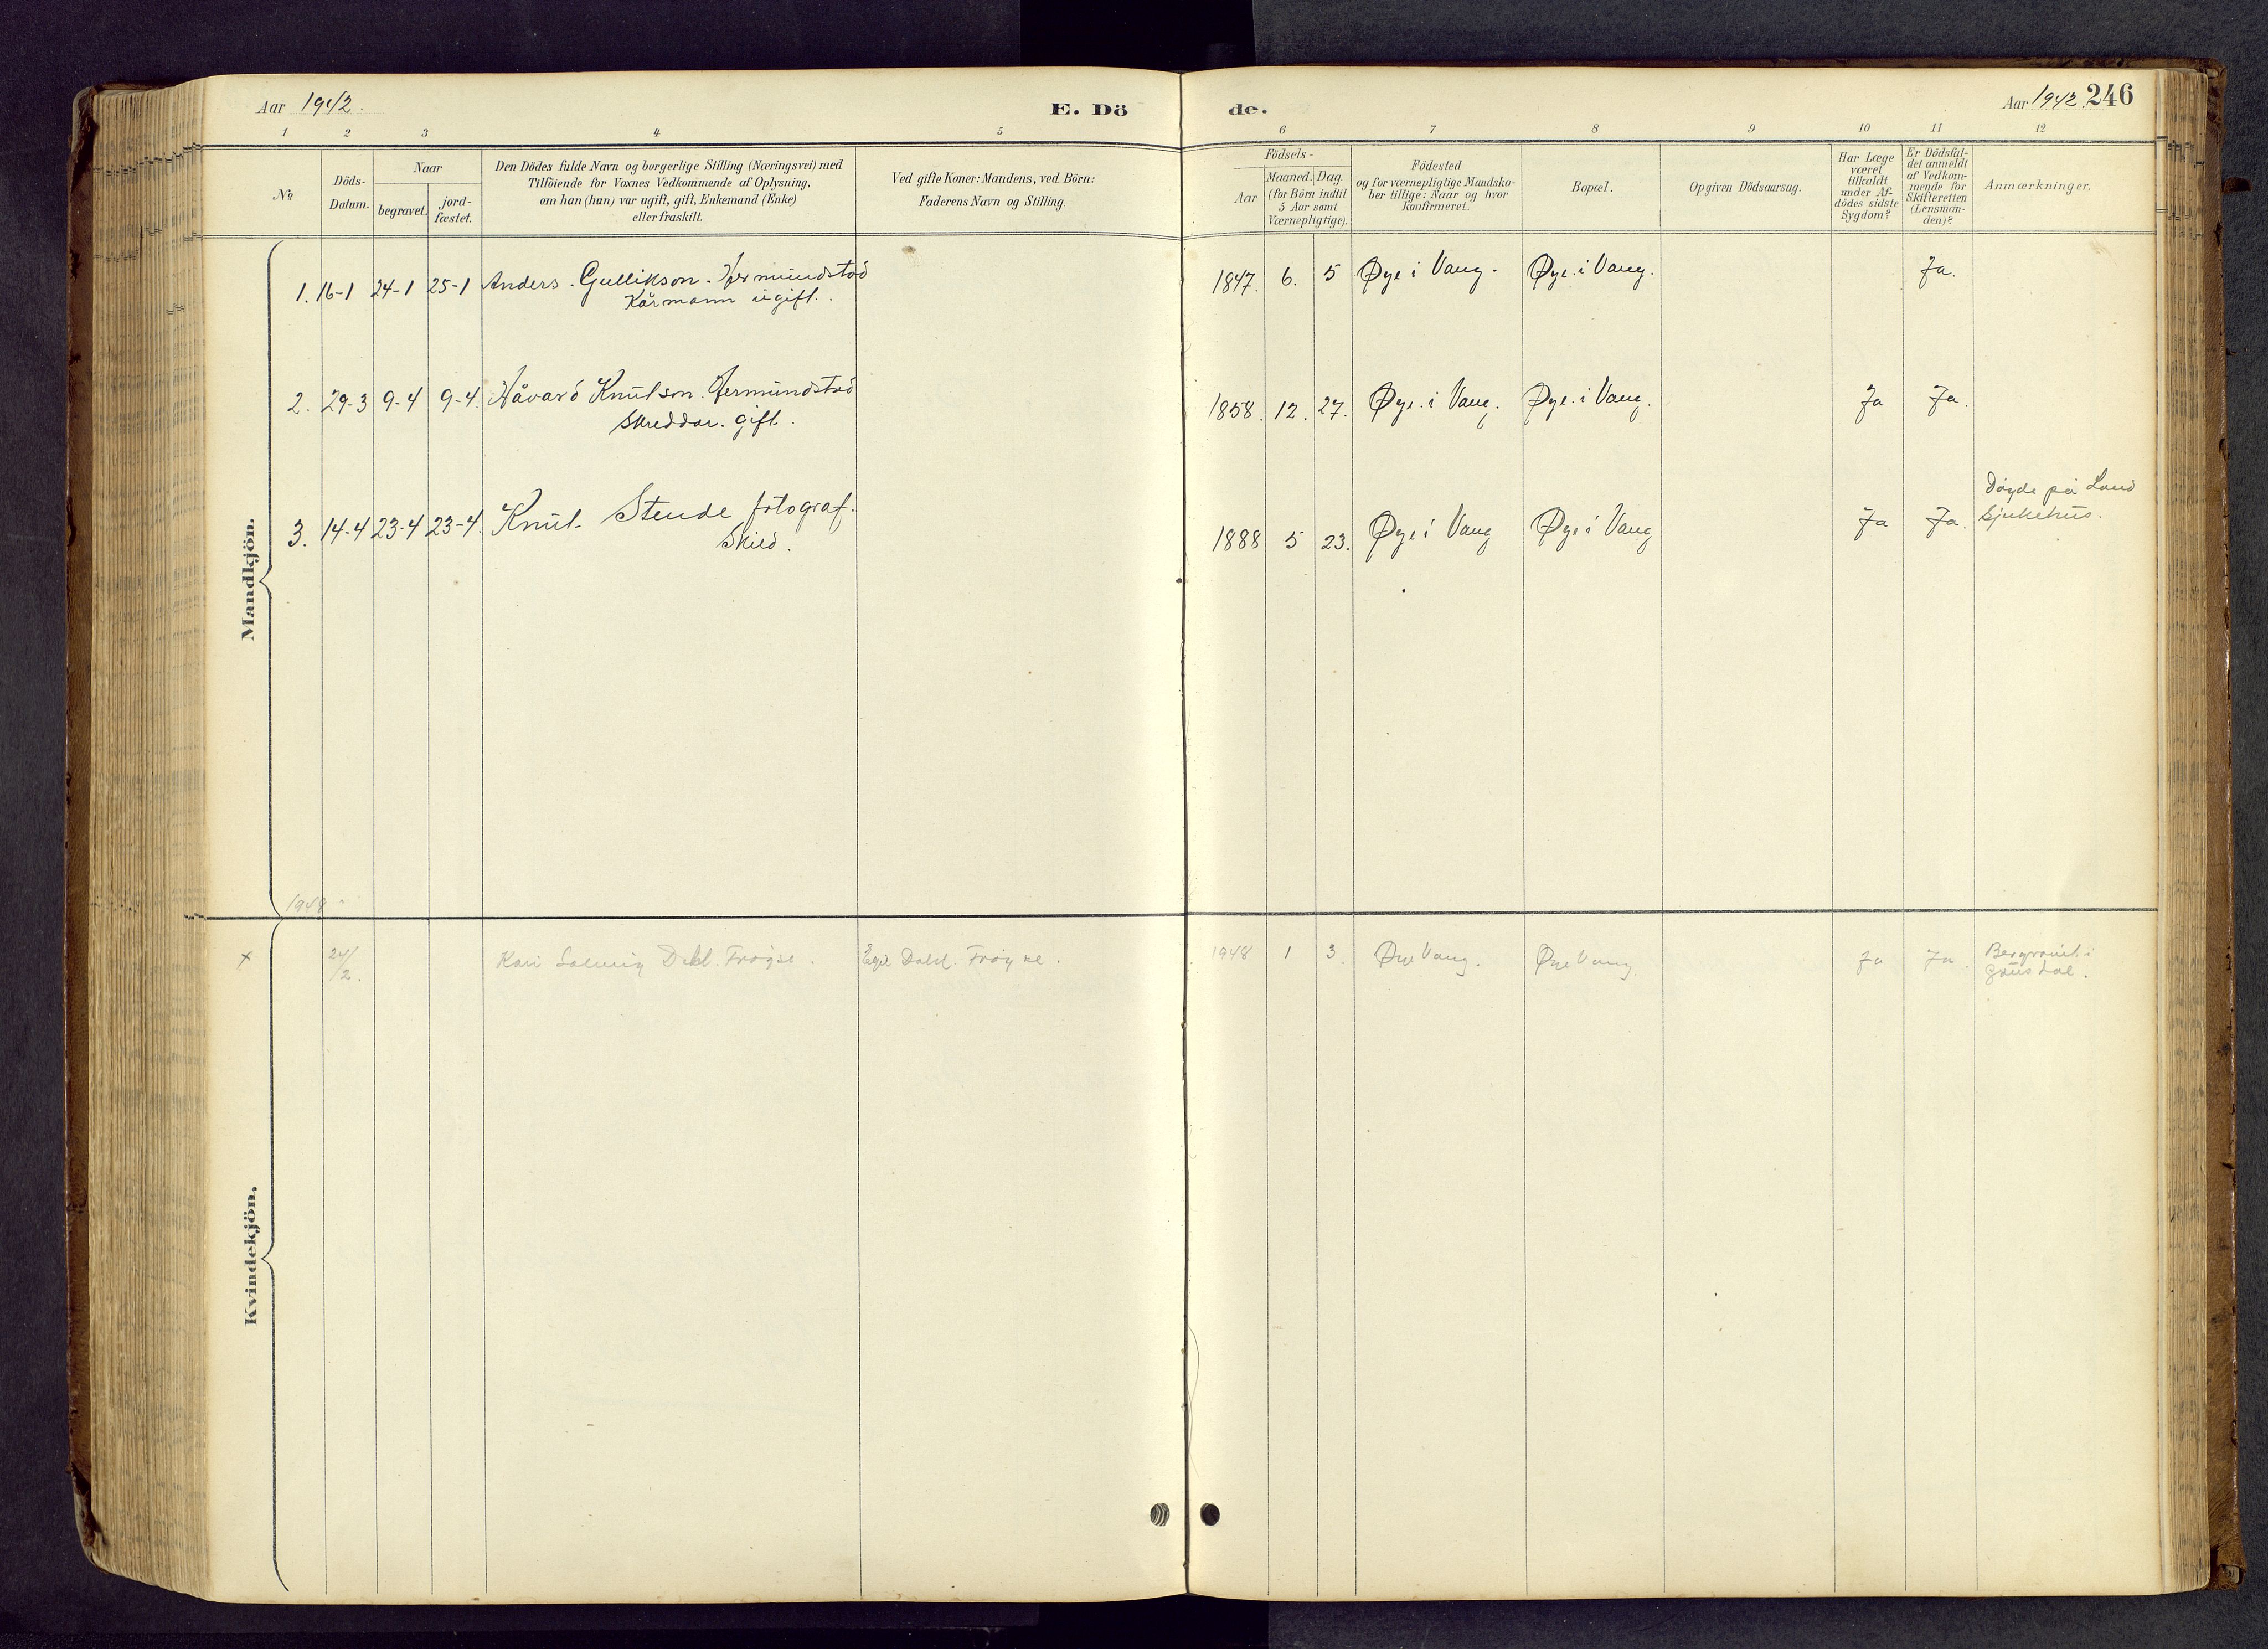 Aar 1942.
E. Dö
de.
Aar 1942. 246
1 2 3 4 5 6 7 8 9 10 11 12
No
Döds-
Datum.
Naar
begravet.
jord-
fæstet.
Den Dödes fulde Navn og borgerlige Stilling (Næringsvei) med
Tilföiende for Voxnes Vedkommende af Oplysning,
om han (hun) var ugift, gift, Enkemand (Enke)
eller fraskilt.
Ved gifte Koner: Mandens, ved Börn:
Faderens Navn og Stilling.
Födsels-
Aar
Maaned. Dag.
(for Börn indtil
5 Aar samt
Værnepligtige).
Födested
og for værnepligtige Mandska-
ber tillige: Naar og hvor
konfirmeret.
Bopæl.
Opgiven Dödsaarsag.
Har Læge
været
tilkaldt
under Af-
dödes sidste
Sygdom?
Er Dödsfal-
det anmeldt
af Vedkom-
mende for
Skifteretten
(Lensman-
den)?
Anmærkninger.
Mandkjön.
1. 16-1 24-1 25-1 Anders Gullikson. Hermundstad 1847. 6. 5 Øye i Vang. Øye i Vang. Ja.
Kårmann ugift.
2. 29-3 9-4 9-4. Håvard Knutson. Hermundstad 1858. 12. 27. Øye i Vang. Øye i Vang. Ja Ja.
Skreddar. gift.
3. 14-4 23-4 23-4. Knut Stende fotograf. 1888 5 23. Øye i Vang Øye i Vang Ja Ja. Døyde på Land
Skild. Sjukehus.
1948
Kvindekjön.
x 24/2. Kari Solveig Dahl. Frøyse. Egil Dahl. 1948 1 3. Øye Vang. Øye Vang. Ja Ja.